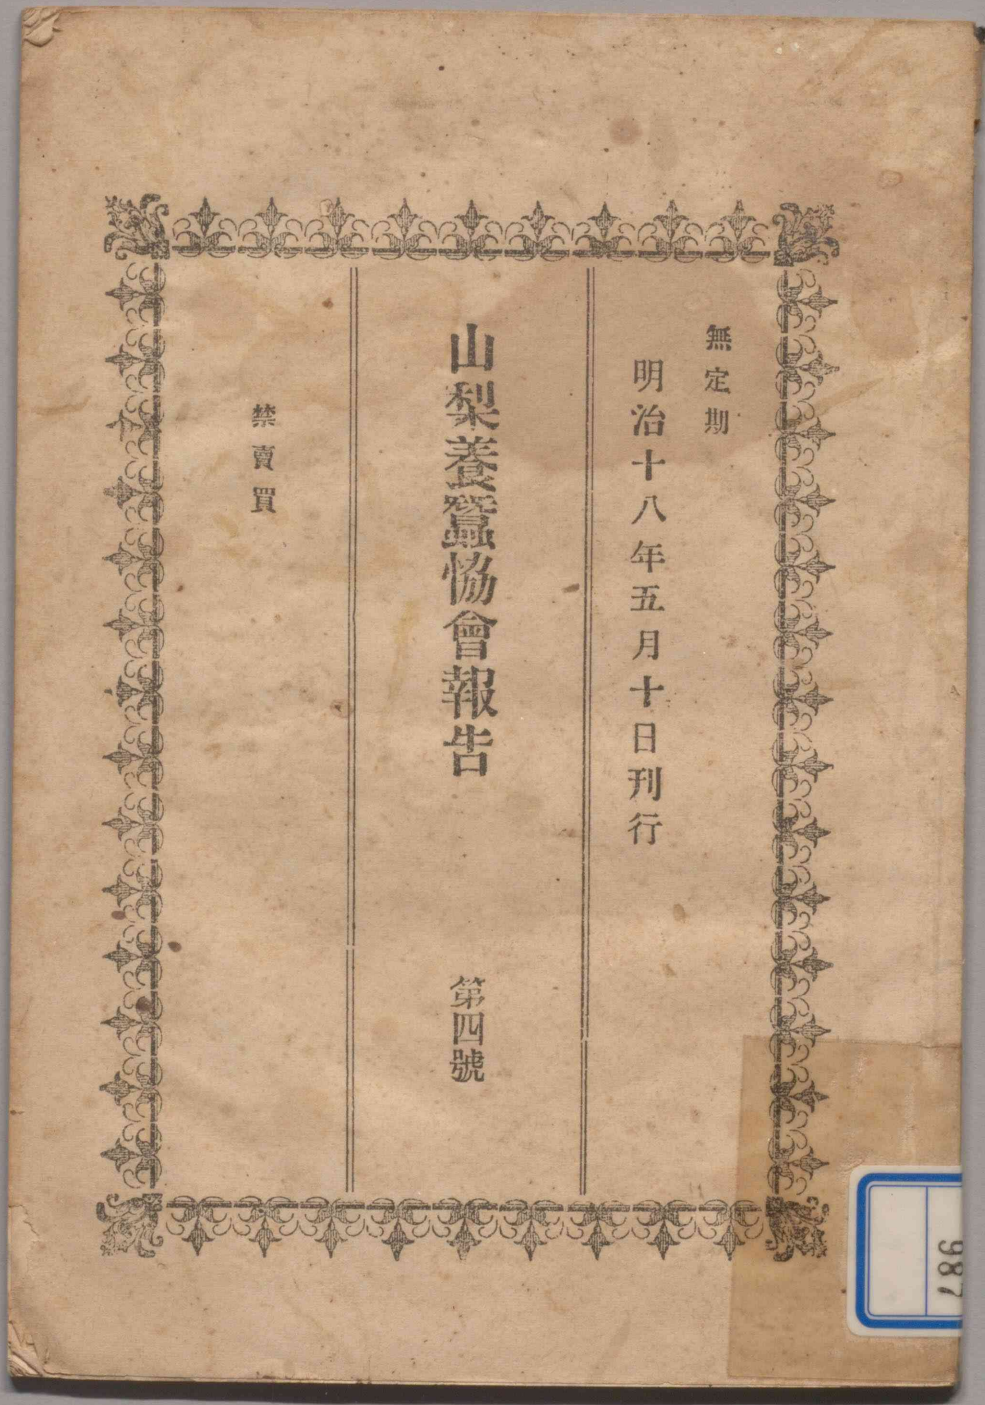 無定期
明治十八年五月十日刊行
山梨養蠶恊會報告
第四號
禁賣買
987